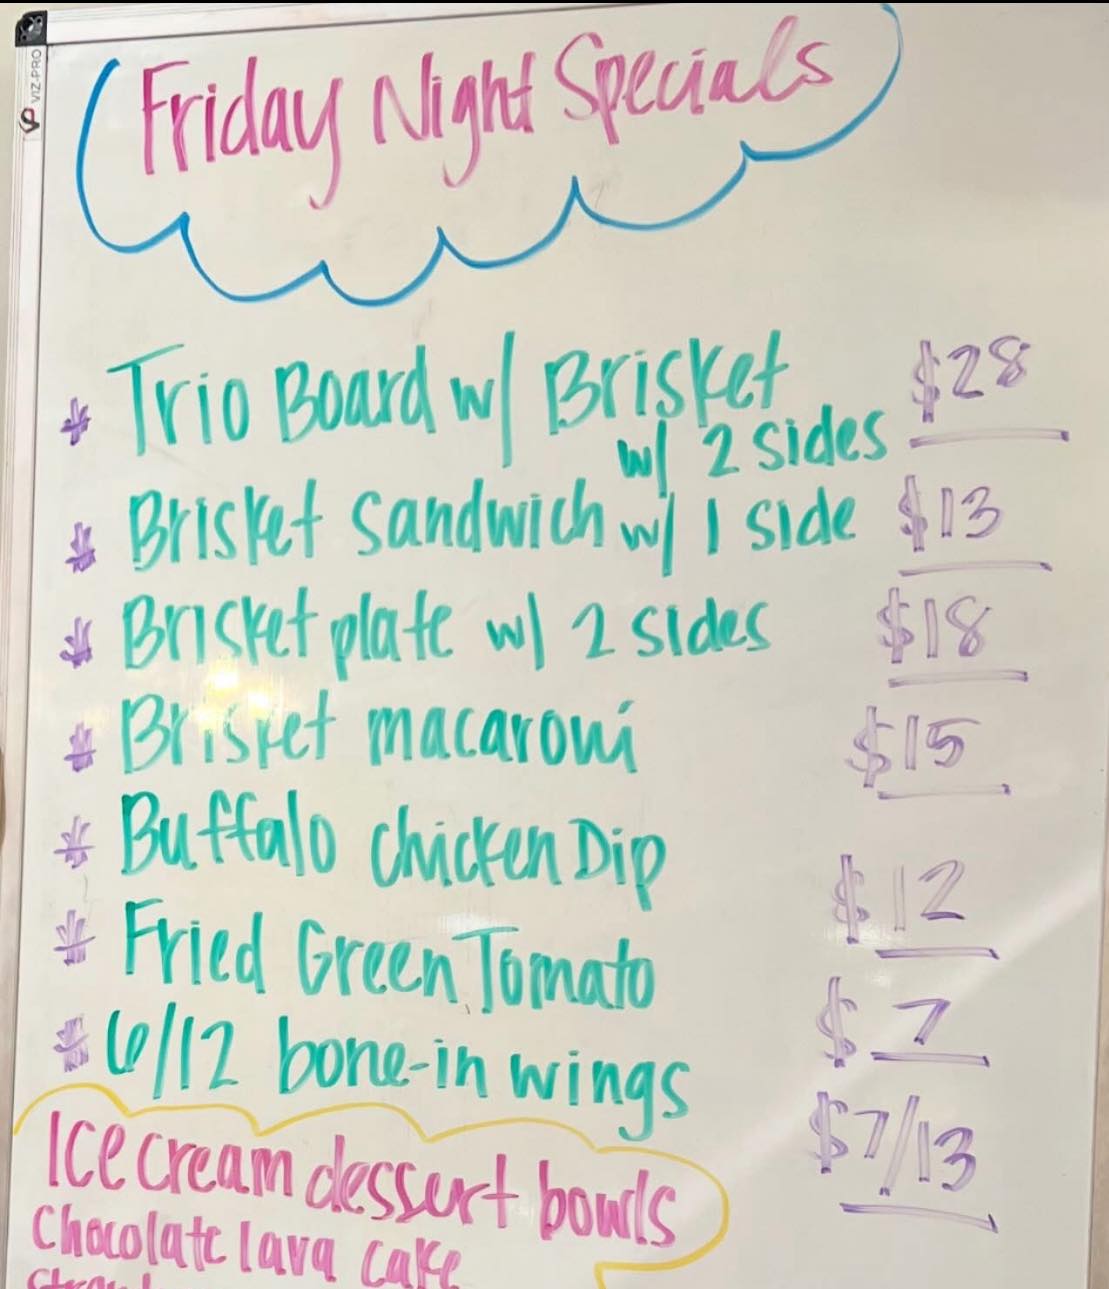 VIZ-PRO
Friday Night Specials
* Trio Board w/ Brisket $28
w/ 2 sides
* Brisket sandwich w/ 1 side $13
* Brisket plate w/ 2 sides $18
* Brisket macaroni $15
* Buffalo chicken Dip $12
* Fried Green Tomato $7
* 6/12 bone-in wings $7/13
Ice cream dessert bowls
Chocolate lava cake